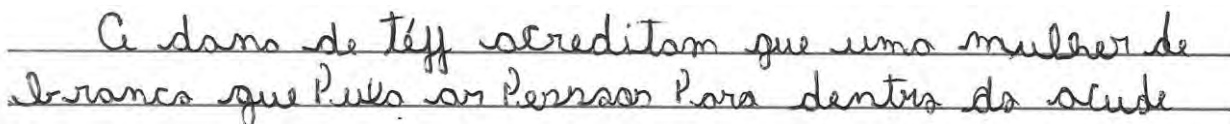 A dano de Téff acreditam que uma mulher de
branca que Puxa as Pessoas Para dentro do acude